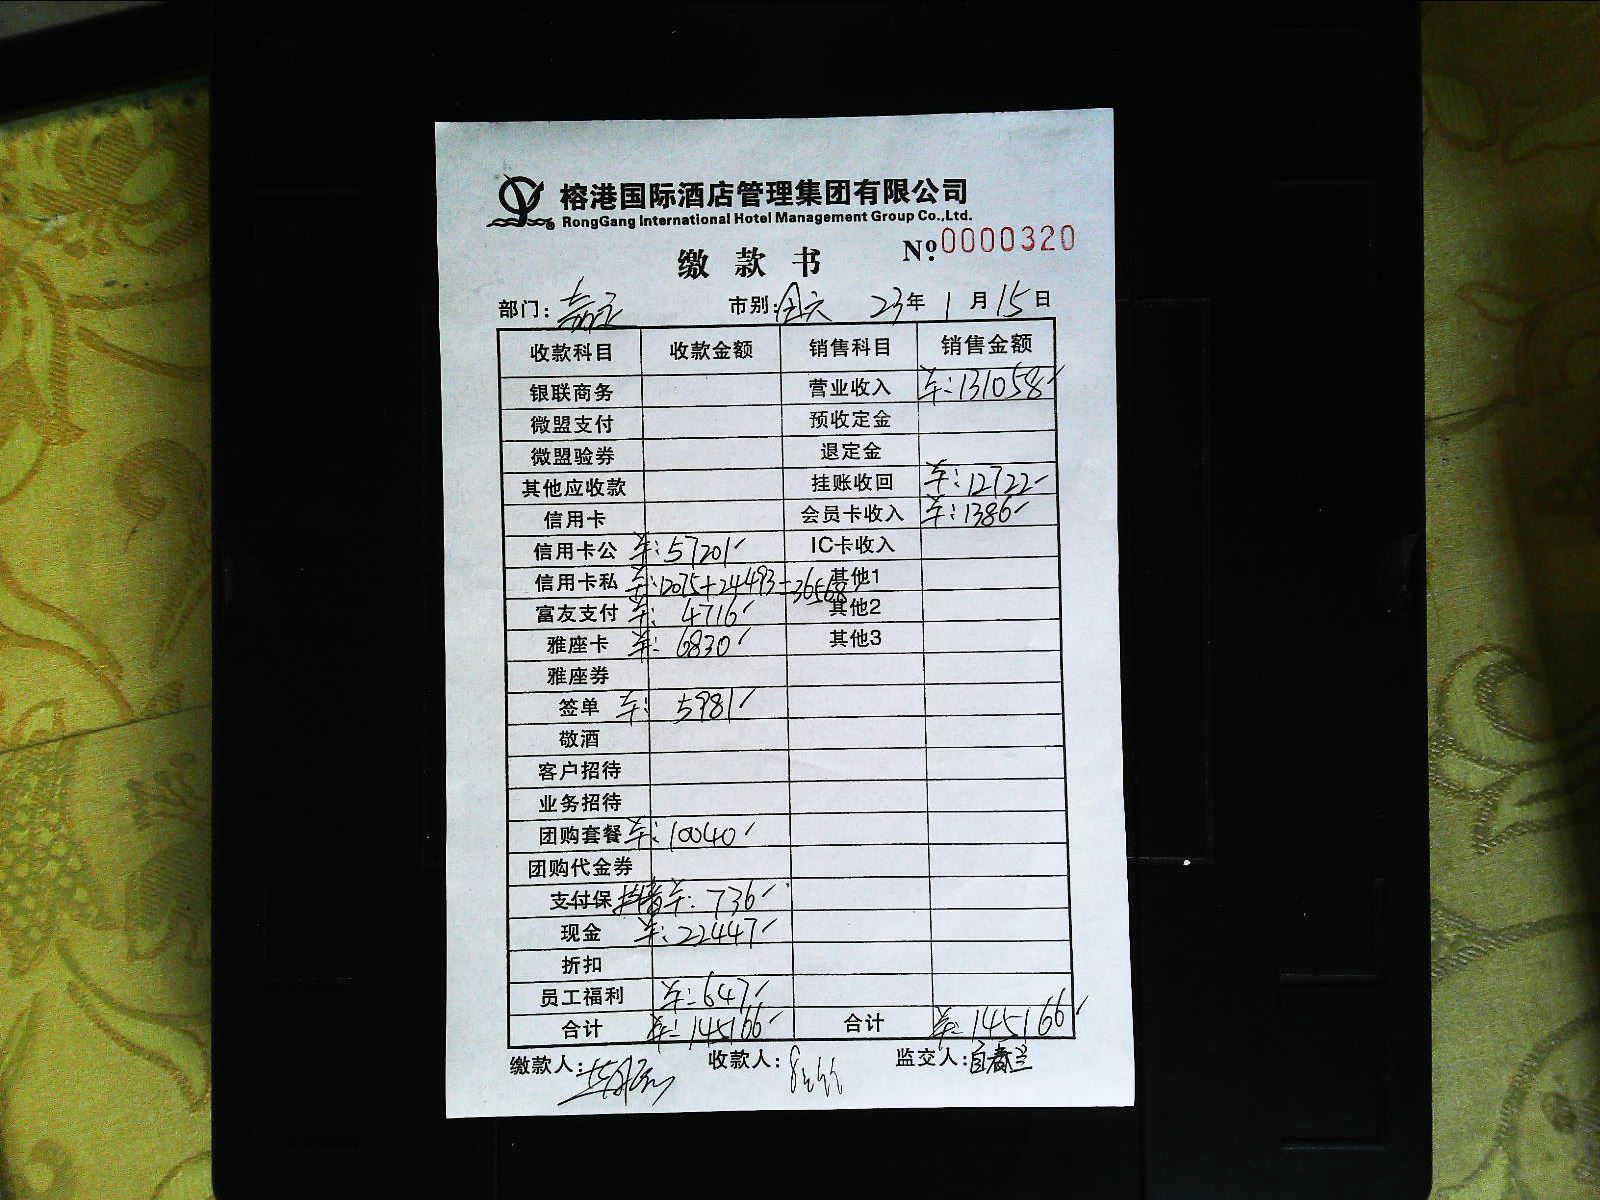 榕港国际酒店管理集团有限公司
RongGang International Hotel Management Group Co.,Ltd.
缴款书 №0000320
部门: 市别: 23年 1月15日
收款科目 收款金额 销售科目 销售金额
银联商务 营业收入 131058
微盟支付 预收定金
微盟验券 退定金
其他应收款 挂账收回 12722
信用卡 会员卡收入 1386
信用卡公 57201 IC卡收入
信用卡私 12075+24493=36568 其他1
富友支付 4716 其他2
雅座卡 6830 其他3
雅座券
签单 5981
敬酒
客户招待
业务招待
团购套餐 10040
团购代金券
支付保 抖音 736
现金 22447
折扣
员工福利 647
合计 145166 合计 145166
缴款人: 收款人: 监交人: